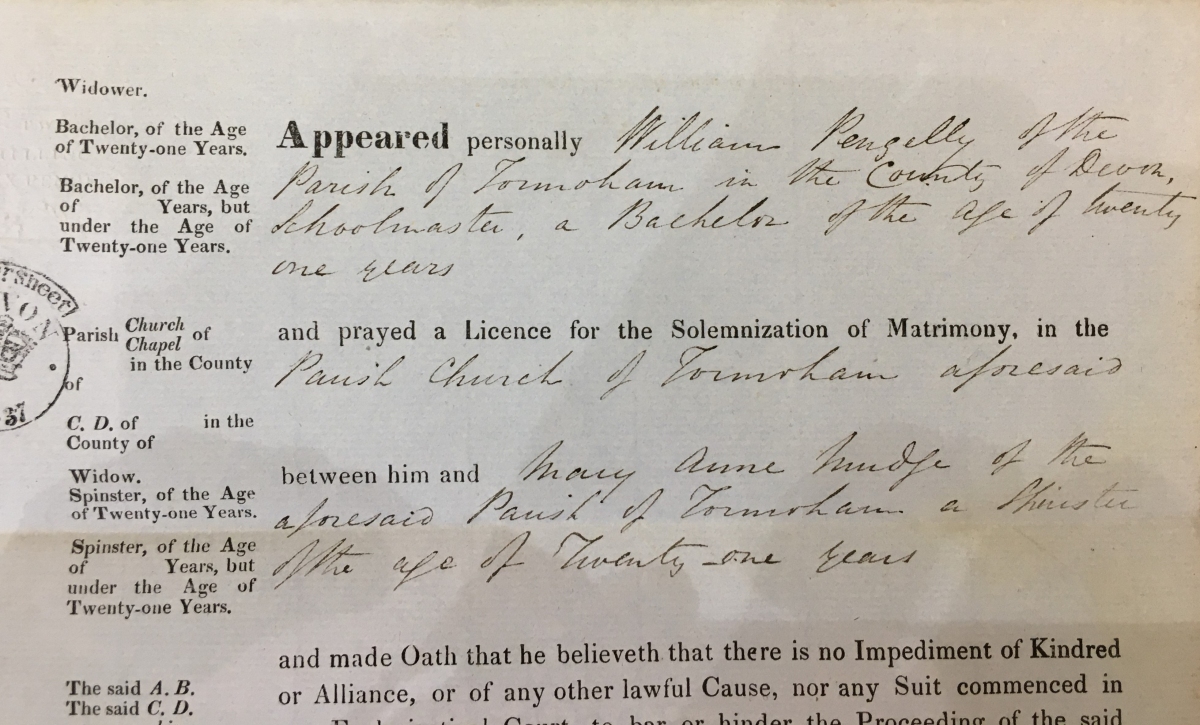 Widower.
Bachelor, of the Age
of Twenty-one Years.
Bachelor, of the Age
of Years, but
under the Age of
Twenty-one Years.
Parish Church of
Chapel
in the County
of
C. D. of in the
County of
Widow.
Spinster, of the Age
of Twenty-one Years.
Spinster, of the Age
of Years, but
under the Age of
Twenty-one Years.
The said A. B.
The said C. D.
VON
37
Appeared personally William Pengelly of the
Parish of Tormoham in the County of Devon,
Schoolmaster, a Bachelor of the age of twenty
one years
and prayed a Licence for the Solemnization of Matrimony, in the
Parish Church of Tormoham aforesaid
between him and Mary Anne Mudge of the
aforesaid Parish of Tormoham a Spinster
of the age of Twenty-one years
and made Oath that he believeth that there is no Impediment of Kindred
or Alliance, or of any other lawful Cause, nor any Suit commenced in
Court, to bar or hinder the Proceeding of the said